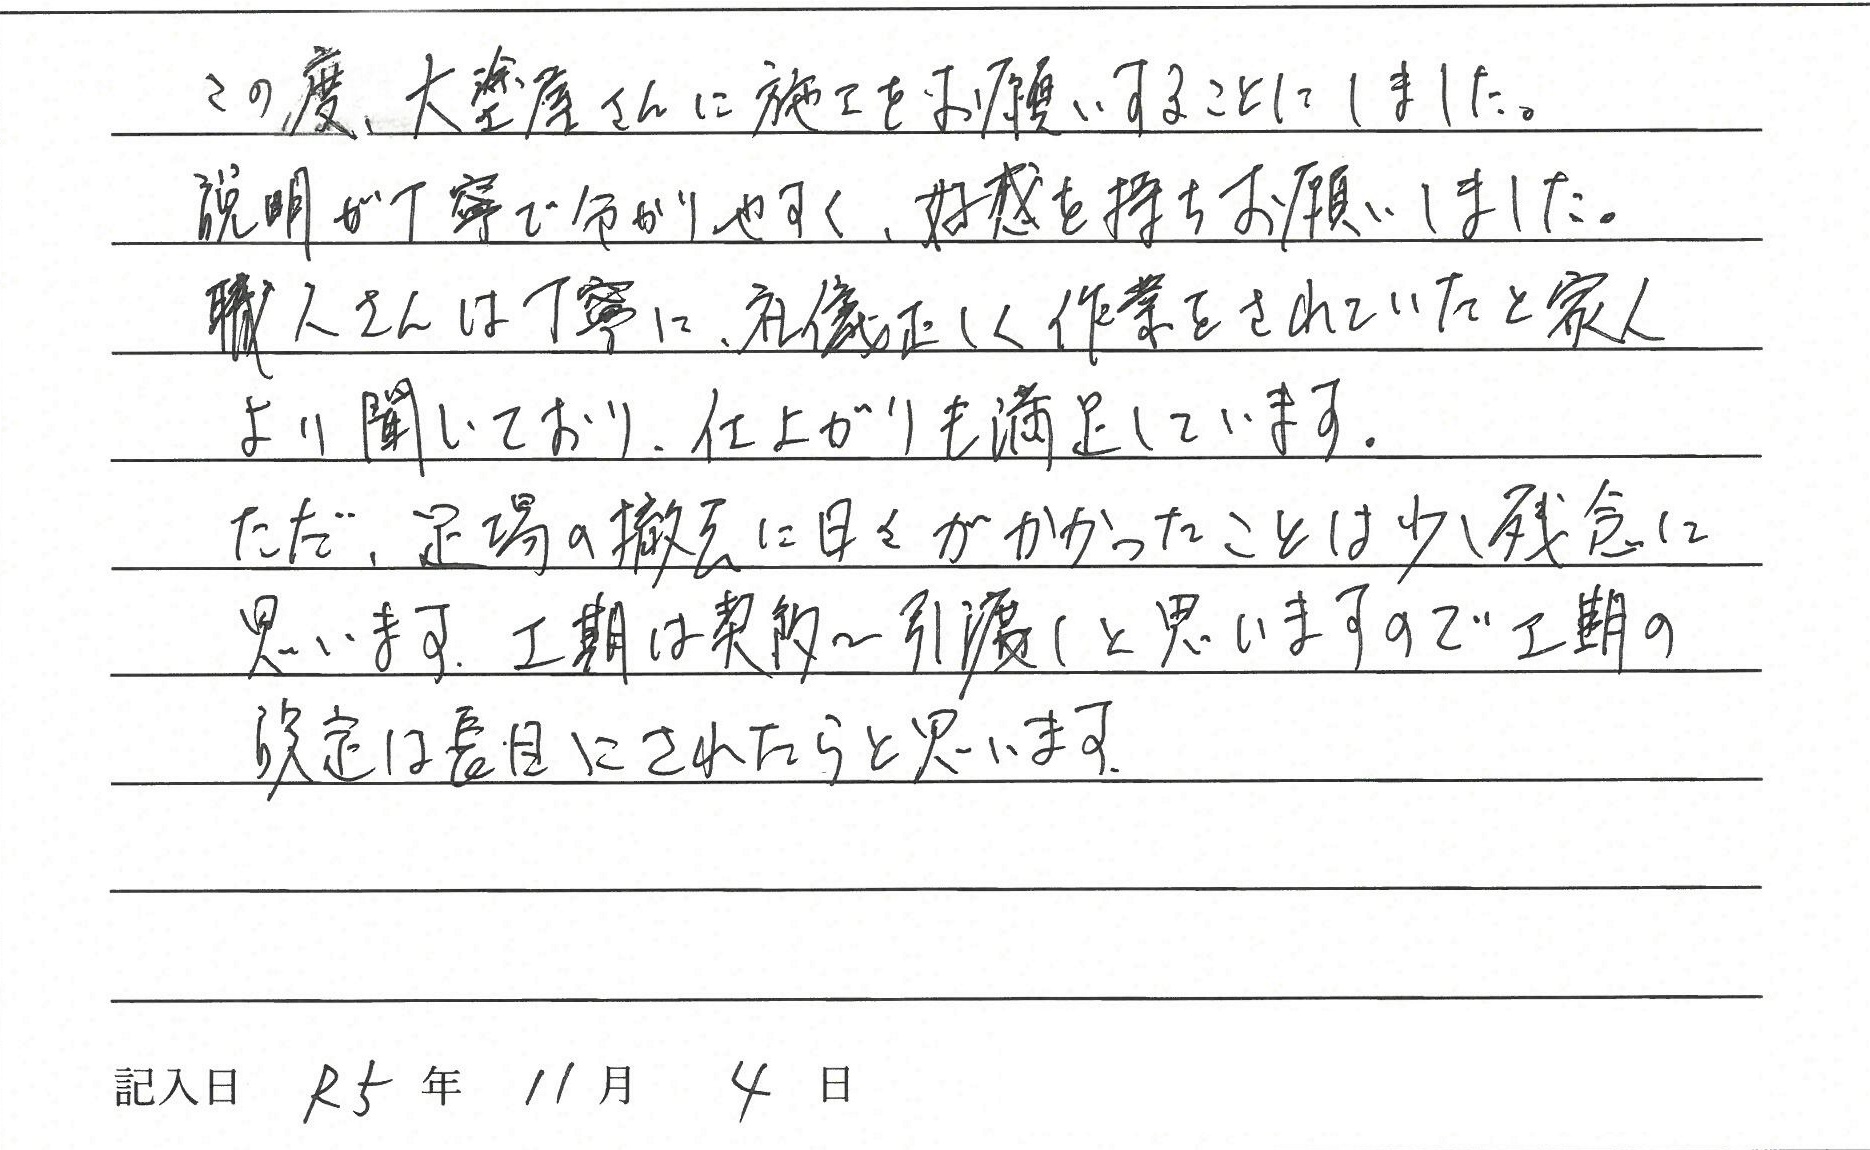 この度、大塗屋さんに施工をお願いすることにしました。
説明が丁寧で分かりやすく、好感を持ちお願いしました。
職人さんは丁寧に、礼儀正しく作業をされていたと家人
より聞いており、仕上がりも満足しています。
ただ、足場の撤去に日々がかかったことは少し残念に
思います。工期は契約〜引渡しと思いますので工期の
設定は長目にされたらと思います。
記入日 R5年 11月 4日